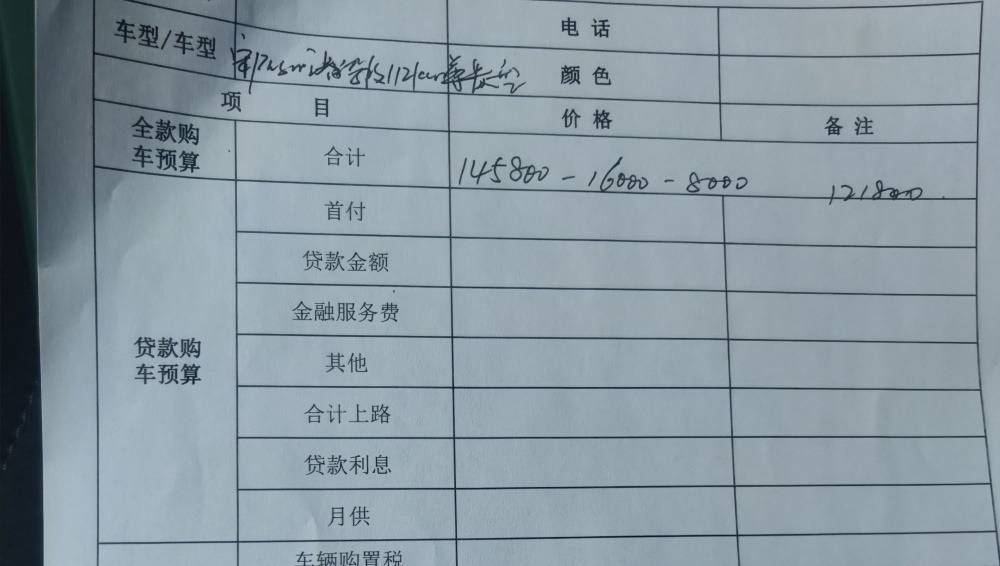 电话
车型/车型
112km尊长
颜色
项目
价格
备注
全款购
车预算
合计
145800-16000-8000
121800
首付
贷款金额
金融服务费
贷款购
车预算
其他
合计上路
贷款利息
月供
车辆购置税